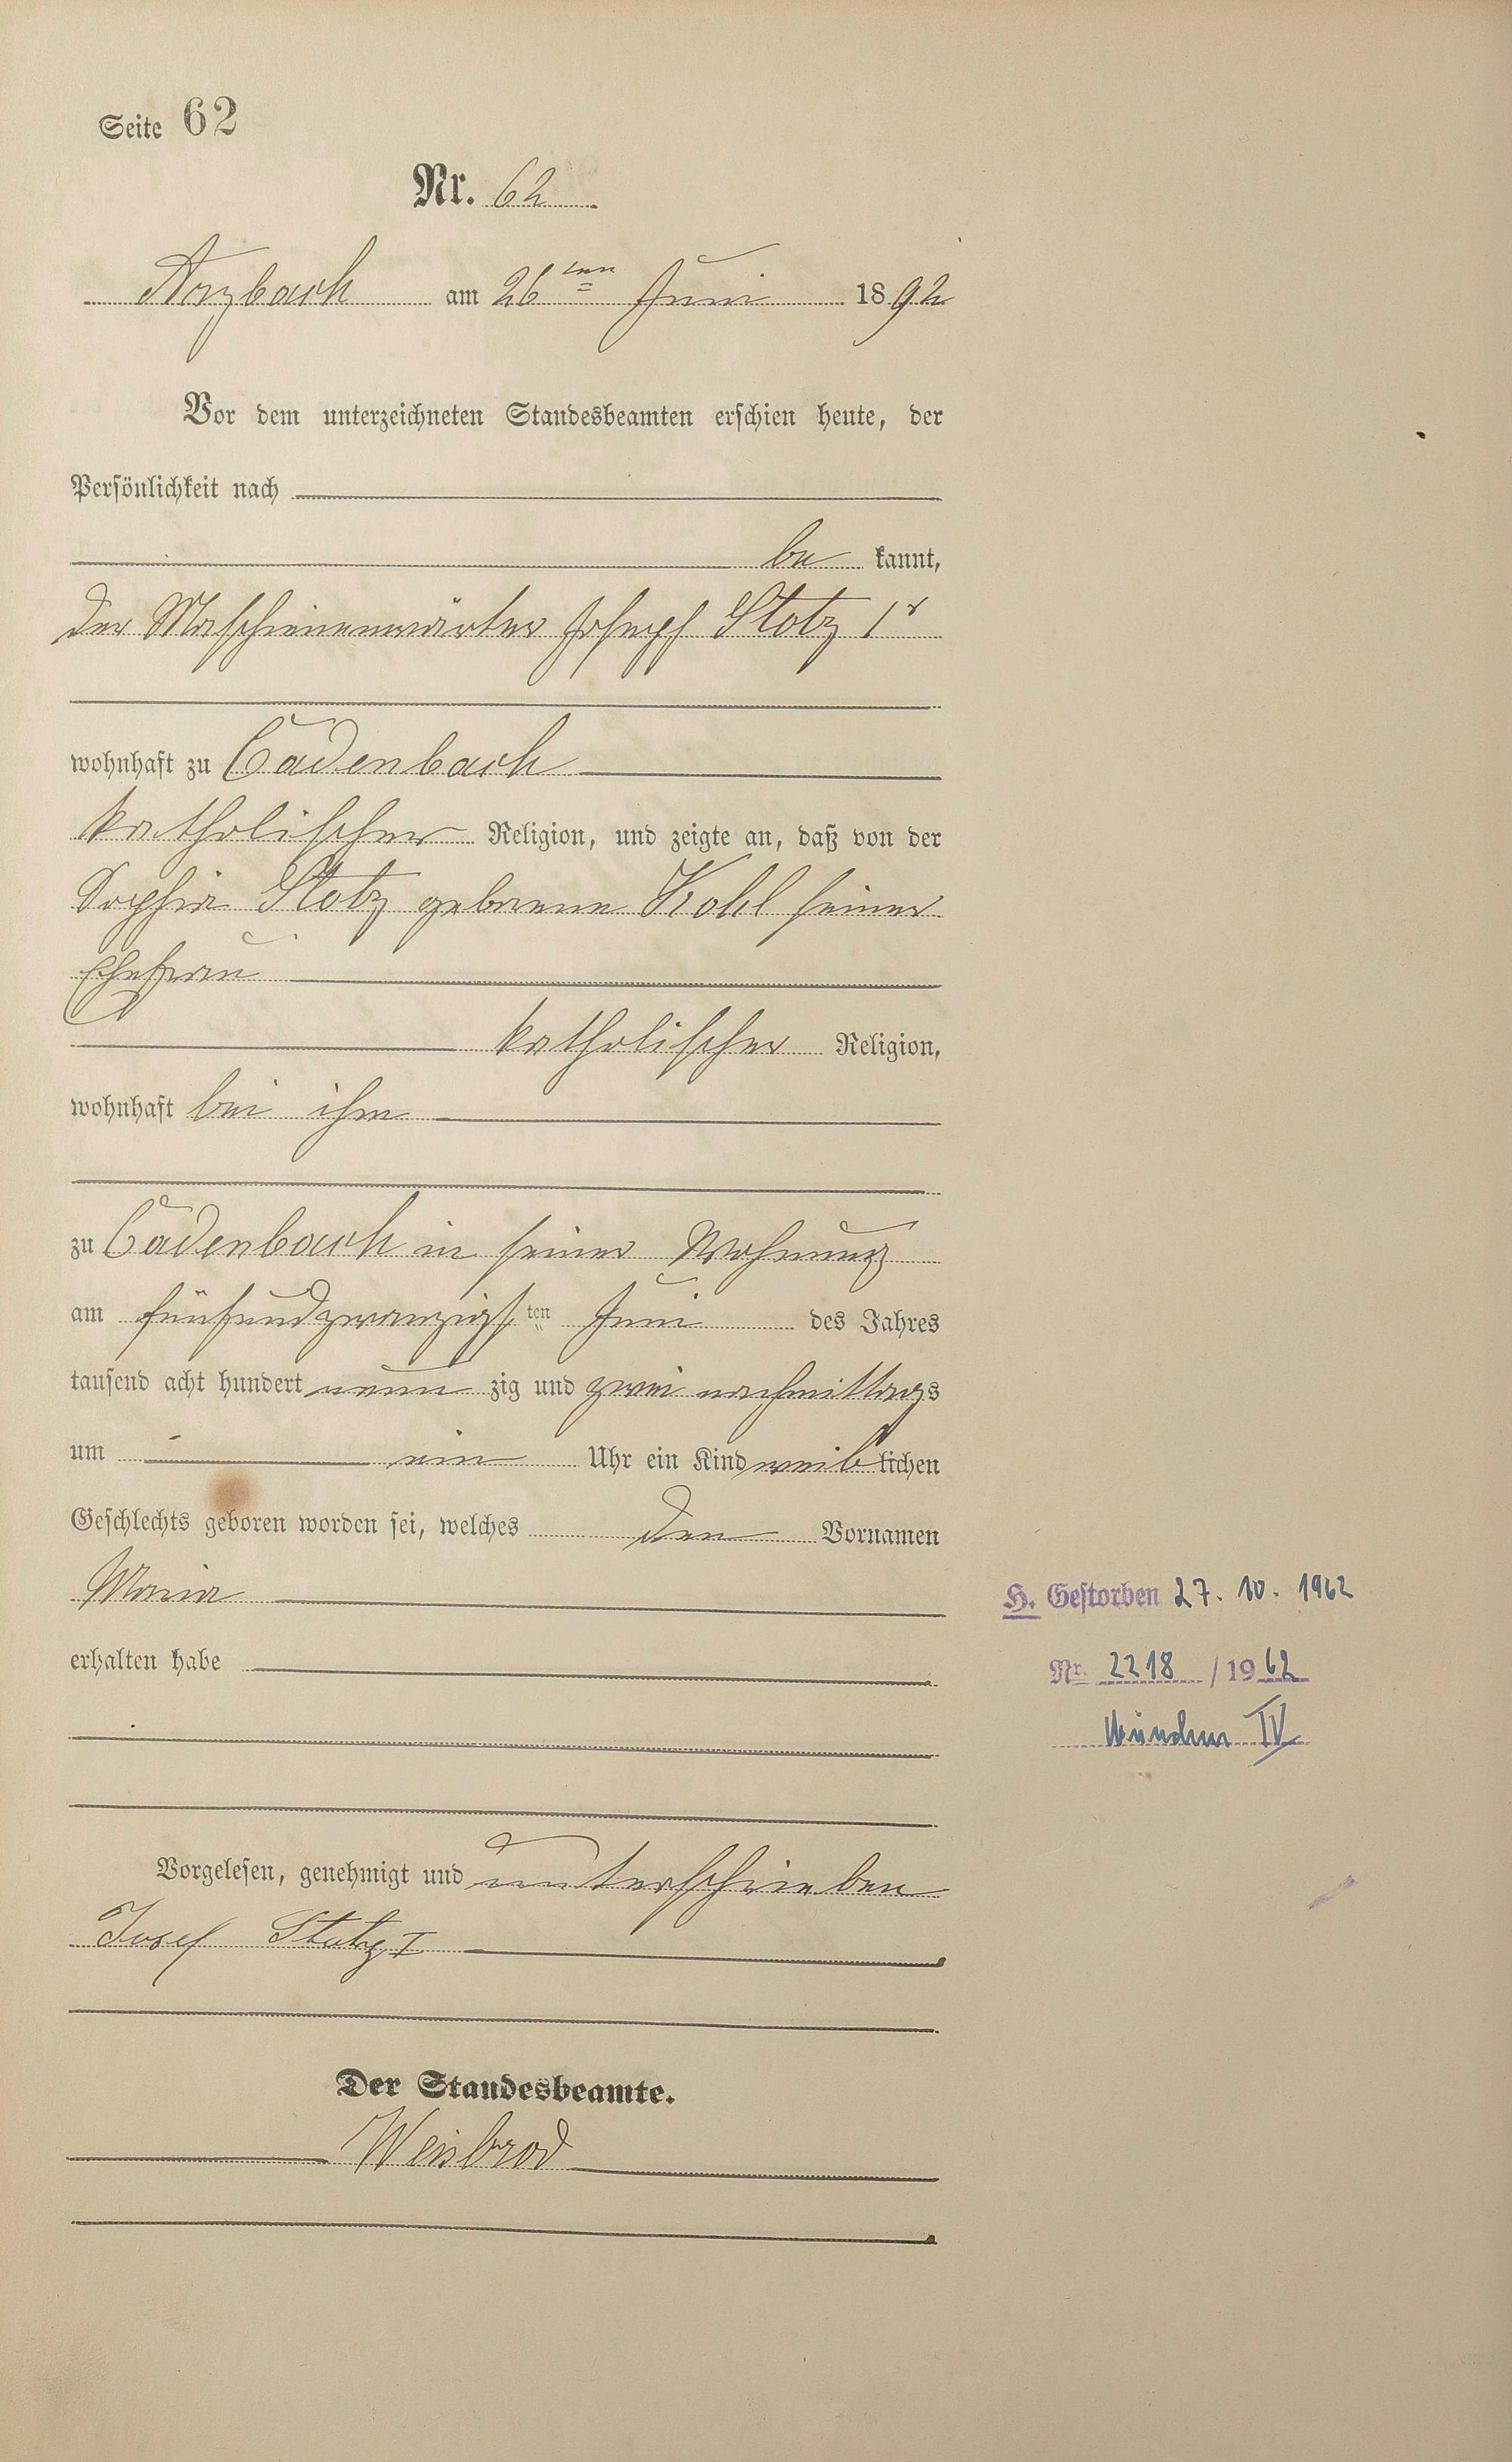 Seite 62
Nr. 62
Arzbach am 26ten Juni 1892
Vor dem unterzeichneten Standesbeamten erschien heute, der
Persönlichkeit nach
be kannt,
der Maschienenwärter Joseph Stotz 1r
wohnhaft zu Cadenbach
katholischer Religion, und zeigte an, daß von der
Sophia Stotz geborene Kohl seiner
Ehefrau
katholischer Religion,
wohnhaft bei ihm
zu Cadenbach in seiner Wohnung
am fünfundzwanzigsten Juni des Jahres
tausend acht hundert neun zig und zwei nachmittags
um ein Uhr ein Kind weiblichen
Geschlechts geboren worden sei, welches den Vornamen
Maria
erhalten habe
H. Gestorben 27. 10. 1962
Nr. 2218 / 1962
München IV
Vorgelesen, genehmigt und unterschrieben
Josef Stotz I
Der Standesbeamte.
Weisbrod